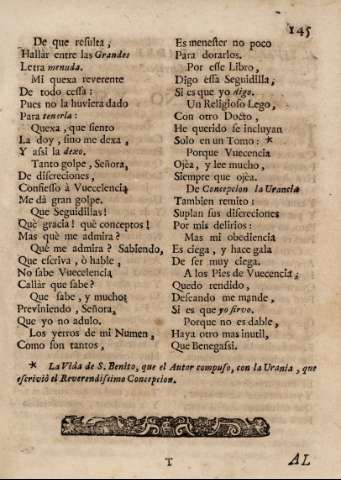 145
De que resulta,
Hallar entre las Grandes
Letra menuda.
Mi quexa reverente
De todo cessa:
Pues no la huviera dado
Para tenerla:
Quexa, que siento
La doy, sino me dexa,
Y assi la dexo.
Tanto golpe, Señora,
De discreciones,
Confiesso à Vuecelencia
Me dà gran golpe.
Que Seguidillas!
Què gracia! què conceptos!
Mas què me admira?
Què me admira? Sabiendo,
Que escriva, ò hable,
No sabe Vuecelencia
Callàr que sabe?
Que sabe, y mucho;
Previniendo, Señora,
Que yo no adulo.
Los yerros de mi Numen,
Como son tantos,
Es menester no poco
Para dorarlos.
Por esse Libro,
Digo essa Seguidilla,
Si es que yo digo.
Un Religioso Lego,
Con otro Docto,
He querido se incluyan
Solo en un Tomo: *
Porque Vuecencia
Ojèa, y lee mucho,
Siempre que ojèa.
De Concepcion la Urancia
Tambien remito:
Suplan sus discreciones
Por mis delirios:
Mas mi obediencia
Es ciega, y hace gala
De ser muy ciega.
A los Pies de Vuecencia,
Quedo rendido,
Deseando me mande,
Si es que yo sirvo.
Porque no es dable,
Haya otro mas inutil,
Que Benegasi.
* La Vida de S. Benito, que el Autor compuso, con la Urania, que
escriviò el Reverendissimo Concepcion.
T
AL